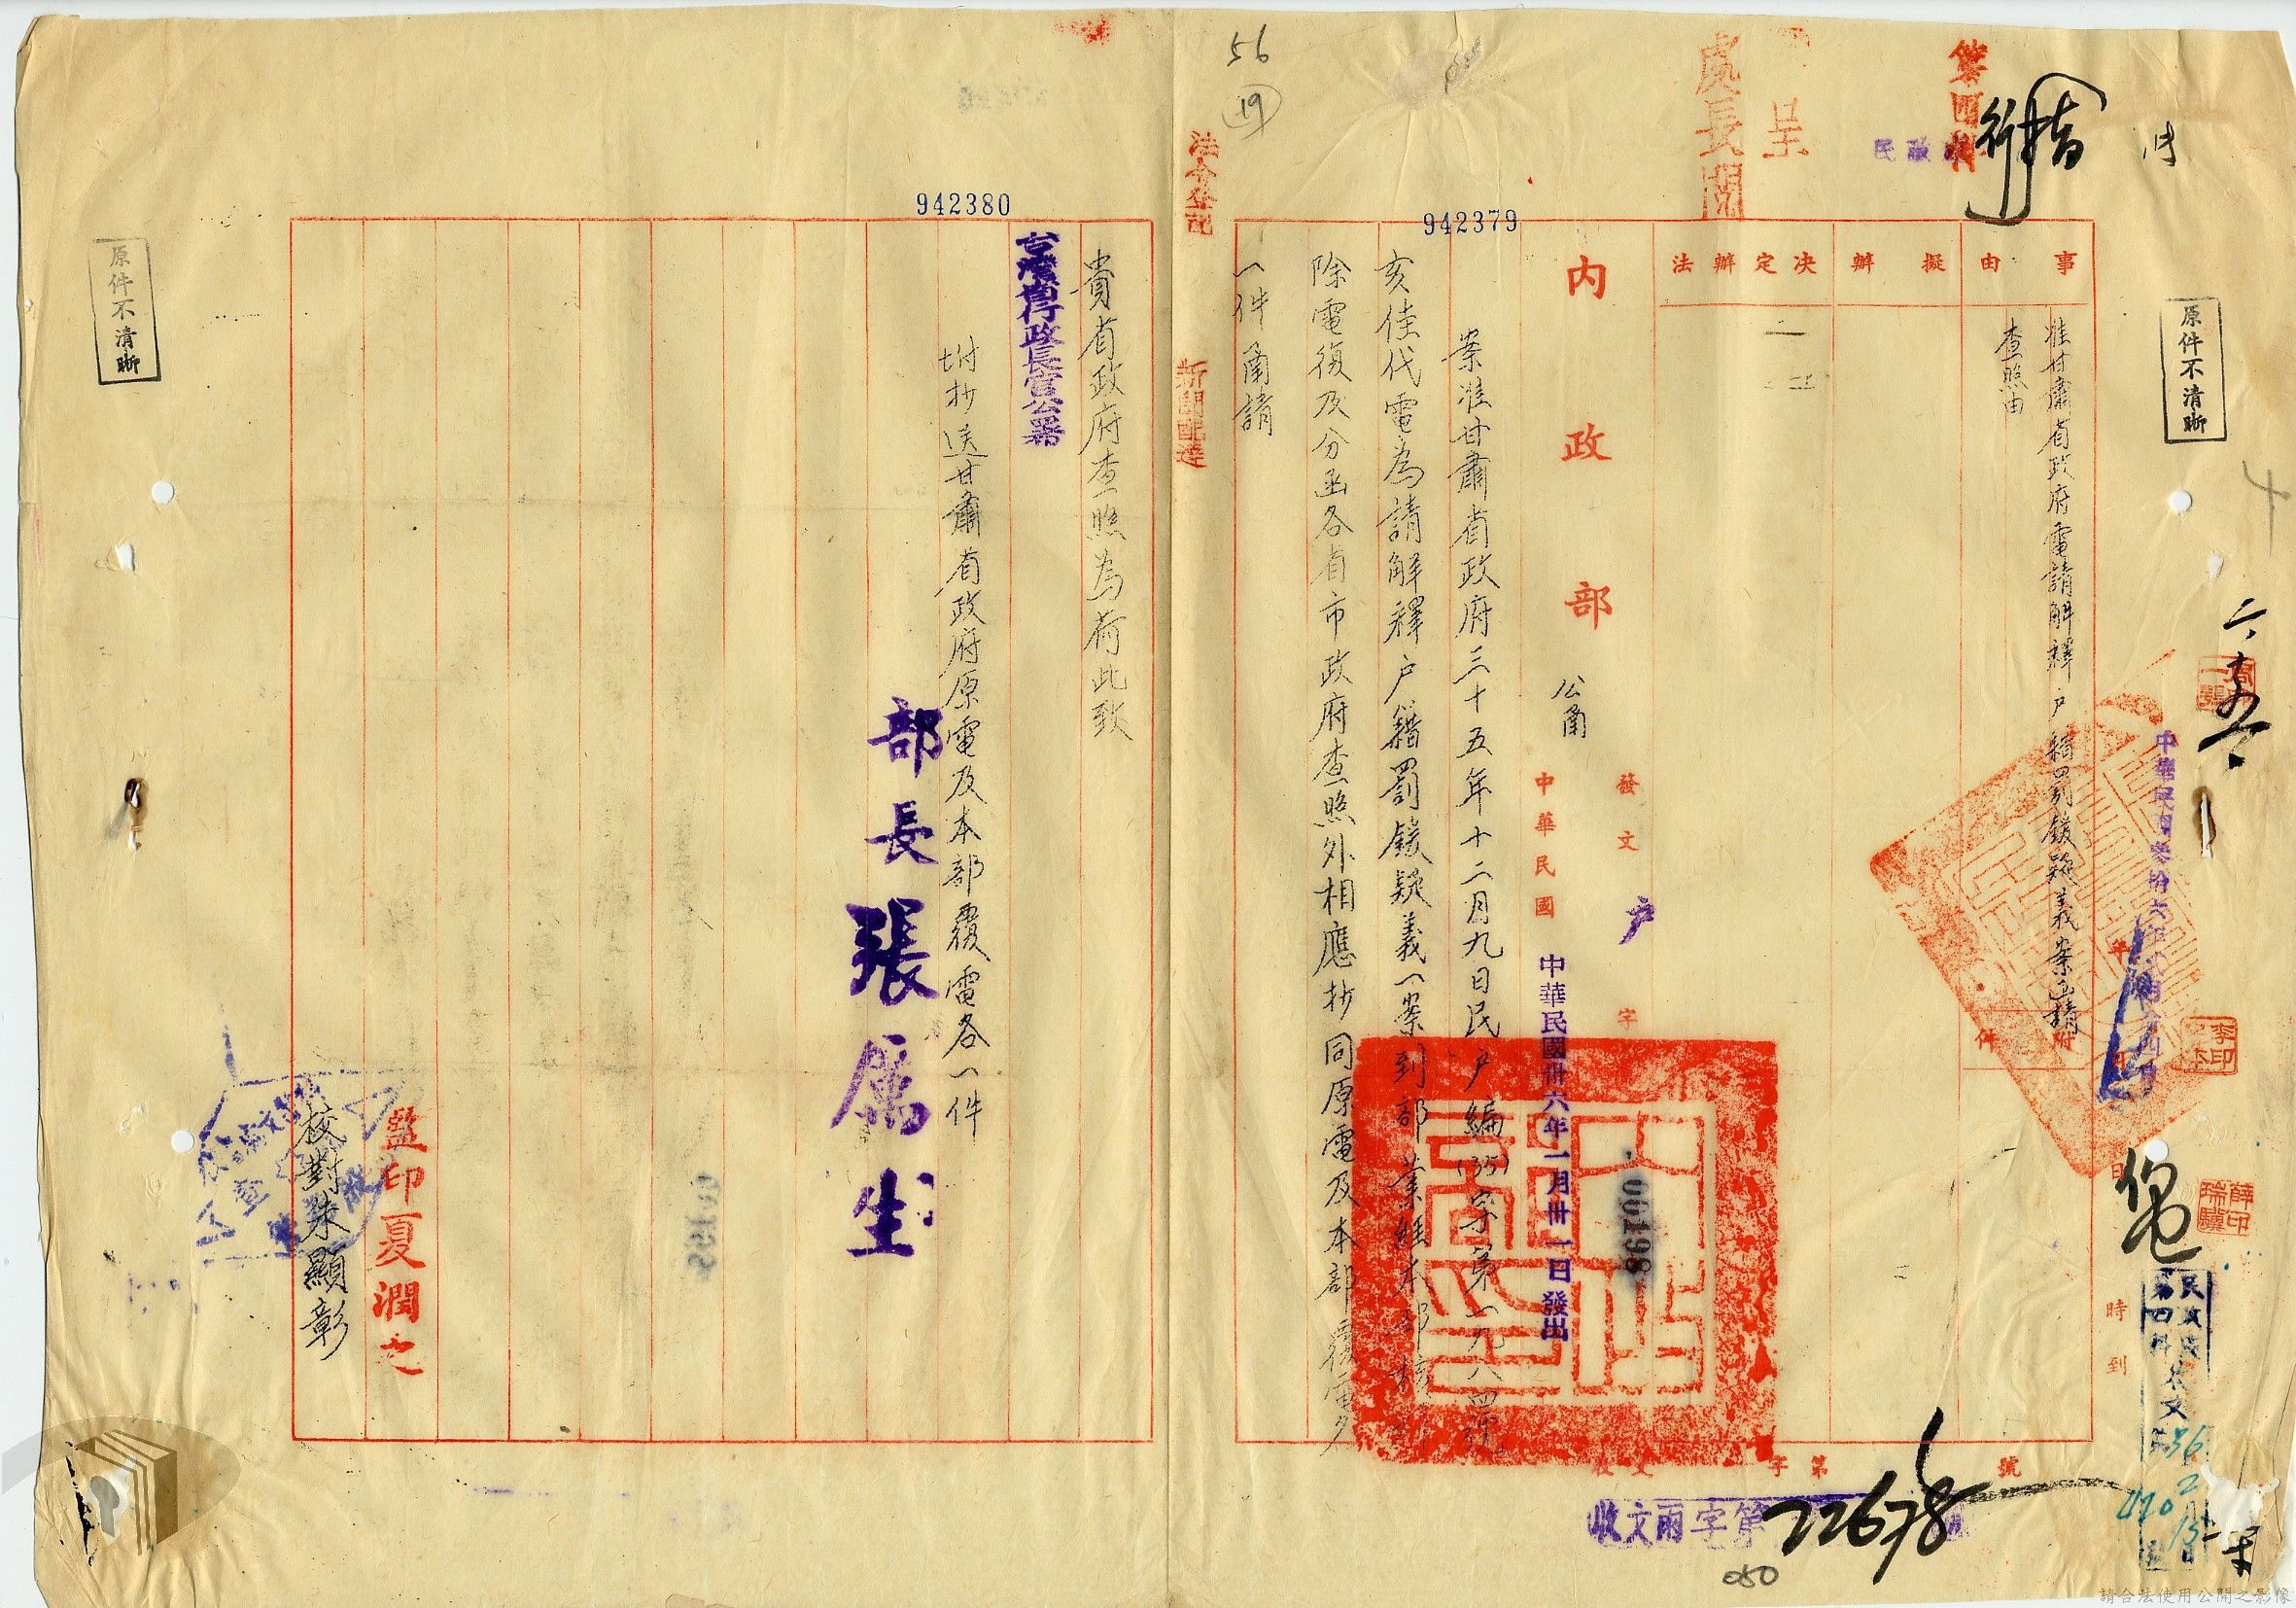 第四科
呈
處長閱
原件不清晰
事由
擬辦
決定辦法
准甘肅省政府電請解釋戶籍罰鍰疑義案函請
查照由
附件
內政部 公函
發文 戶 字
001198
中華民國
中華民國卅六年一月卅一日發出
942379
案准甘肅省政府三十五年十二月九日民戶編(35)字第一九八四號
亥佳代電為請解釋戶籍罰鍰疑義一案到部業經本部核
除電復及分函各省市政府查照外相應抄同原電及本部覆電各
一件函請
56
19
法令登記
新聞配達
942380
貴省政府查照為荷此致
台灣省行政長官公署
附抄送甘肅省政府原電及本部覆電各一件
部長張厲生
監印夏潤之
校對朱顯彰
原件不清晰
年
日
時到
收文 字第 號
收文雨字第22678
050
請合法使用公開之影像